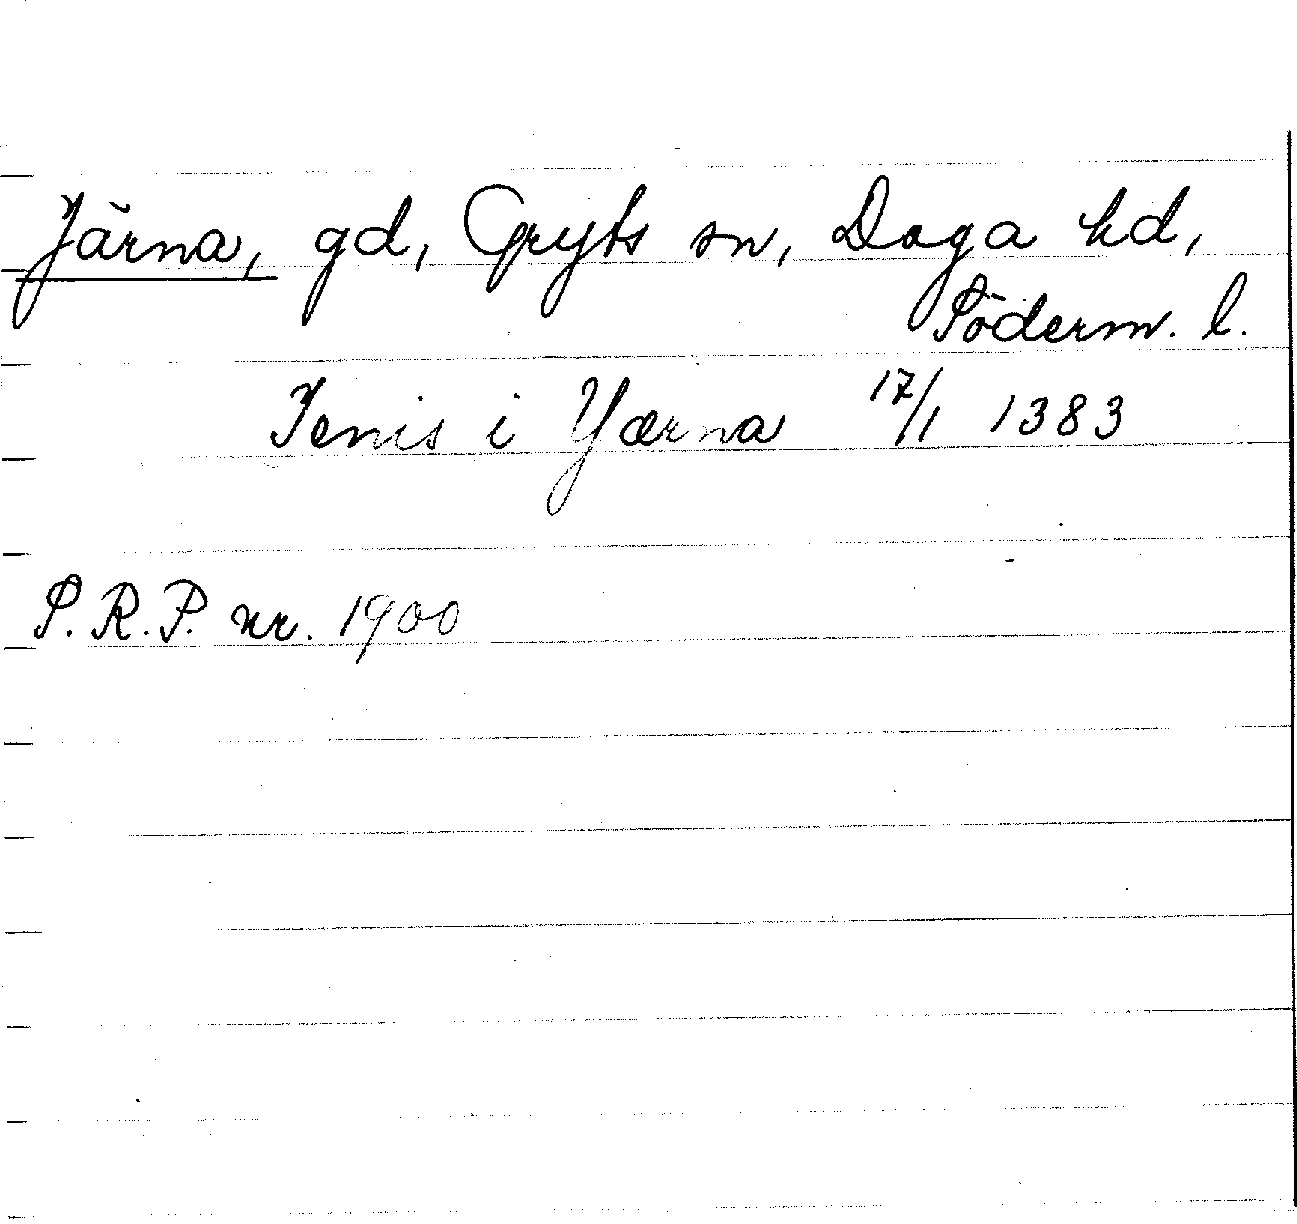 Järna, gd, Gryts sn, Daga hd,
Söderm. l.
Jenis i Yærna 17/1 1383
S.R.P. nr. 1900